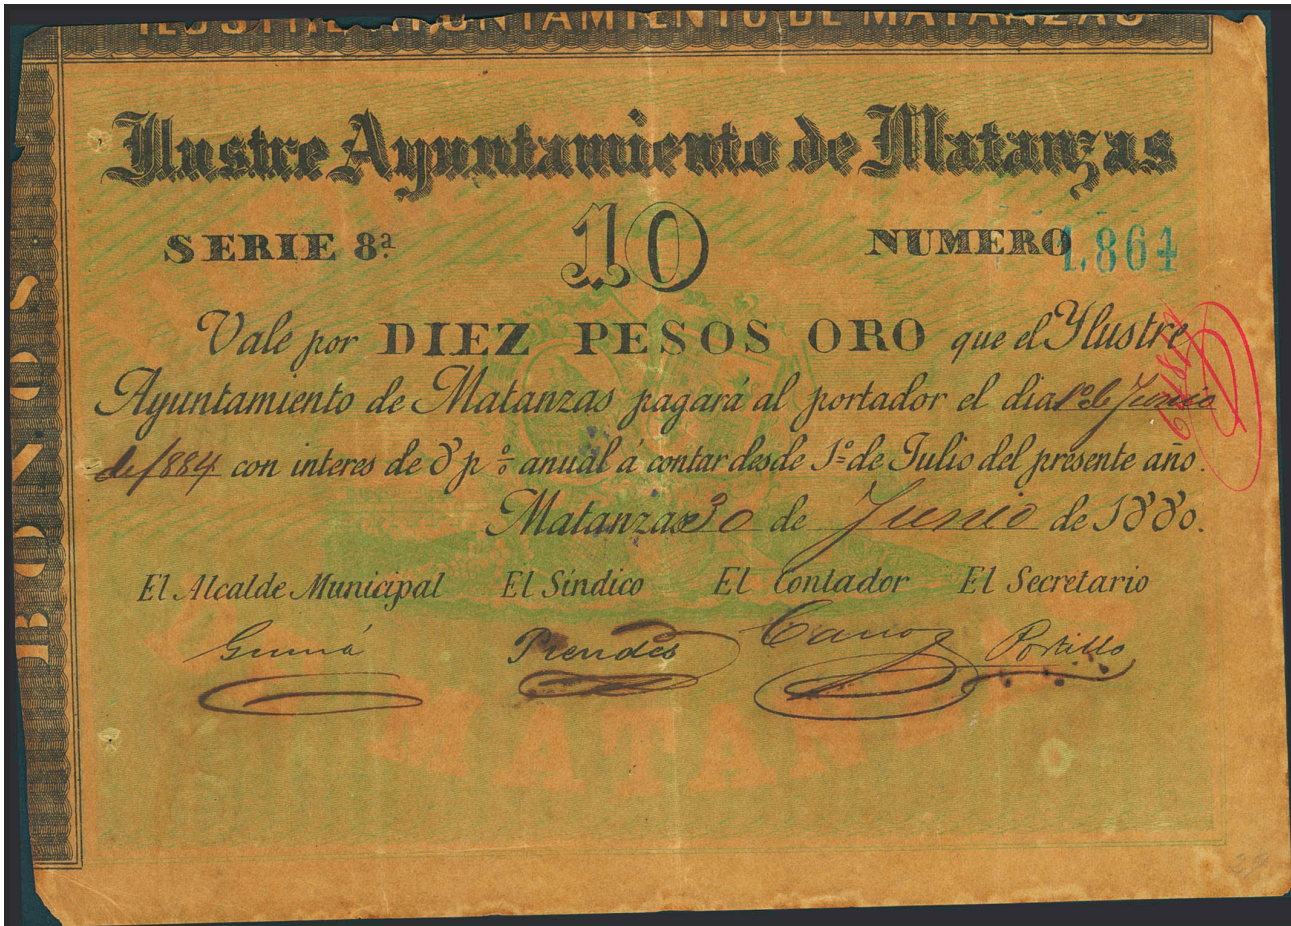 ILUSTRE AYUNTAMIENTO DE MATANZAS
BONOS
Ilustre Ayuntamiento de Matanzas
SERIE 8ª. 10 NUMERO 1,864
Vale por DIEZ PESOS ORO que el Ylustre
Ayuntamiento de Matanzas pagará al portador el dia 1º de Junio
de 1884 con interes de 8 p% anual á contar desde 1º de Julio del presente año.
Matanzas 30 de Junio de 1880.
El Alcalde Municipal El Síndico El Contador El Secretario
Gumá Prendes Portillo
MATAN
28